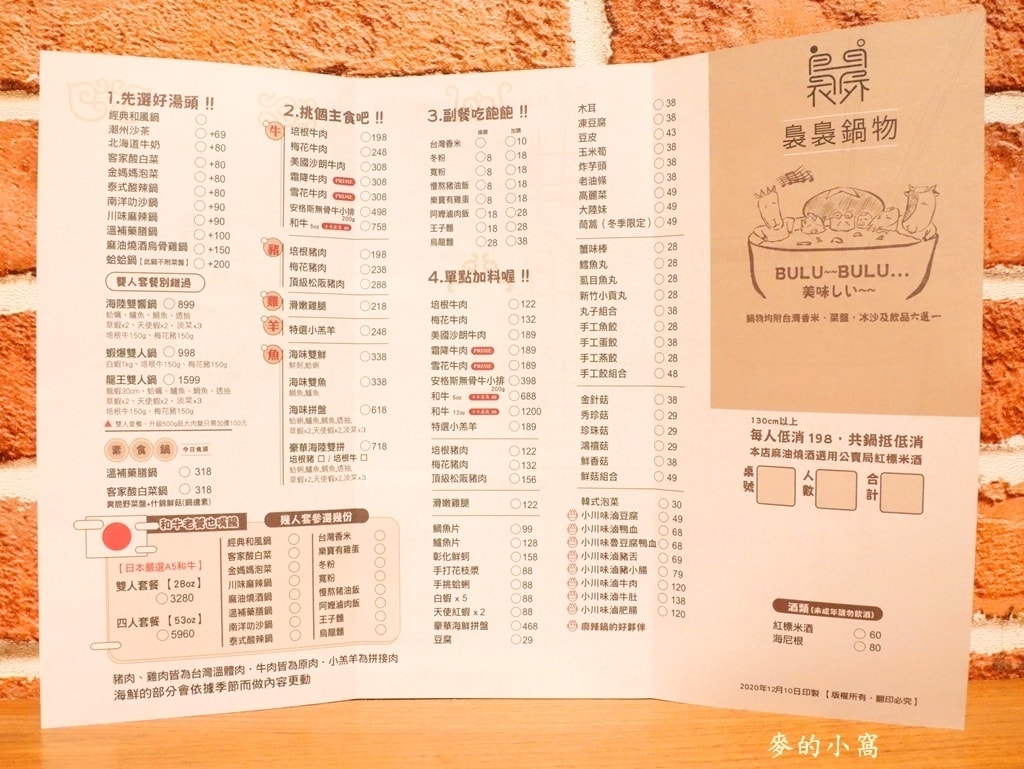 1.先選好湯頭 !!
經典和風鍋
潮州沙茶 +69
北海道牛奶 +80
客家酸白菜 +80
金媽媽泡菜 +80
泰式酸辣鍋 +80
南洋叻沙鍋 +90
川味麻辣鍋 +90
溫補藥膳鍋 +100
麻油燒酒烏骨雞鍋 +150
蛤蛤鍋【此鍋不附菜盤】 +200
雙人套餐別錯過
海陸雙響鍋 899
蛤蠣、鱸魚、鯛魚、透抽
草蝦x2、天使蝦x2、淡菜x3
培根牛150g、梅花豬150g
蝦爆雙人鍋 998
白蝦1kg、培根牛150g、梅花豬150g
龍王雙人鍋 1599
龍蝦30cm、蛤蠣、鱸魚、鯛魚、透抽
草蝦x2、天使蝦x2、淡菜x3
培根牛150g、梅花豬150g
▲ 雙人套餐，升級500g超大肉盤只需加價100元
素食鍋 今日食蔬
溫補藥膳鍋 318
客家酸白菜鍋 318
爽脆野菜盤+什錦鮮菇(鍋邊素)
2.挑個主食吧 !!
牛
培根牛肉 198
梅花牛肉 248
美國沙朗牛肉 308
霜降牛肉 PRIME 308
雪花牛肉 PRIME 308
安格斯無骨牛小排 200g 498
和牛 5oz 758
豬
培根豬肉 198
梅花豬肉 238
頂級松阪豬肉 288
雞
滑嫩雞腿 218
羊
特選小羔羊 248
魚
海味雙鮮 338
鮮蚵,蛤蜊
海味雙魚 338
鯛魚,鱸魚
海味拼盤 618
蛤蜊,鱸魚,鯛魚,透抽,
草蝦x2,天使蝦x2,淡菜x3
豪華海陸雙拼 718
培根豬 □ / 培根牛 □
蛤蜊,鱸魚,鯛魚,透抽,
草蝦x2,天使蝦x2,淡菜x3
3.副餐吃飽飽 !!
換購 加購
台灣香米 10
冬粉 8 18
寬粉 8 18
慢熬豬油飯 8 18
樂寶有雞蛋 8 18
阿嬤滷肉飯 18 28
王子麵 18 28
烏龍麵 28 38
4.單點加料喔 !!
培根牛肉 122
梅花牛肉 132
美國沙朗牛肉 189
霜降牛肉 PRIME 189
雪花牛肉 PRIME 189
安格斯無骨牛小排 200g 398
和牛 5oz 688
和牛 12oz 1200
特選小羔羊 189
培根豬肉 122
梅花豬肉 132
頂級松阪豬肉 156
滑嫩雞腿 122
鯛魚片 99
鱸魚片 128
彰化鮮蚵 158
手打花枝漿 88
手挑蛤蜊 88
白蝦 x 5 88
天使紅蝦 x 2 88
豪華海鮮拼盤 468
豆腐 29
木耳 38
凍豆腐 38
豆皮 43
玉米筍 38
炸芋頭 38
老油條 38
高麗菜 49
大陸妹 49
茼蒿（冬季限定） 49
蟹味棒 28
鱈魚丸 28
虱目魚丸 28
新竹小貢丸 28
丸子組合 38
手工魚餃 28
手工蛋餃 38
手工燕餃 28
手工餃組合 48
金針菇 38
秀珍菇 29
珍珠菇 29
鴻禧菇 29
鮮香菇 38
鮮菇組合 49
韓式泡菜 30
小川味滷豆腐 49
小川味滷鴨血 68
小川味魯豆腐鴨血 68
小川味滷豬舌 69
小川味滷豬小腸 79
小川味滷牛肉 120
小川味滷牛肚 138
小川味滷肥腸 120
麻辣鍋的好夥伴
和牛老饕也嘴饞
【日本嚴選A5和牛】
雙人套餐【28oz】
3280
四人套餐【53oz】
5960
幾人套參選幾份
經典和風鍋
客家酸白菜
金媽媽泡菜
川味麻辣鍋
麻油燒酒鍋
溫補藥膳鍋
泰式酸辣鍋
台灣香米
樂寶有雞蛋
冬粉
寬粉
慢熬豬油飯
阿嬤滷肉飯
王子麵
烏龍麵
豬肉、雞肉皆為台灣溫體肉，牛肉皆為原肉，小羔羊為拼接肉
海鮮的部分會依據季節而做內容更動
裊裊鍋物
BULU~~BULU...
美味しい~~
鍋物均附台灣香米、菜盤、冰沙及飲品六選一
130cm以上
每人低消 198，共鍋抵低消
本店麻油燒酒選用公賣局紅標米酒
桌號
人數
合計
酒類(未成年請勿飲酒)
紅標米酒 60
海尼根 80
2020年12月10日印製【版權所有，翻印必究】
麥的小窩